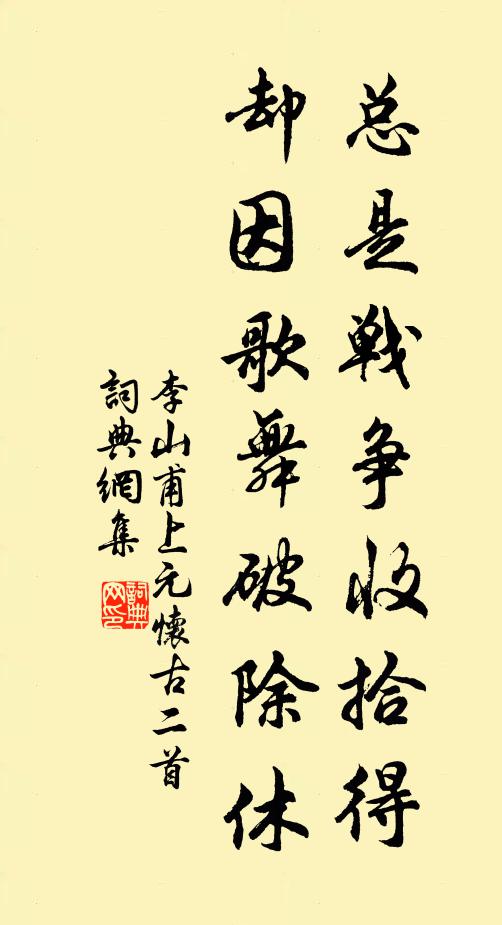 总是戰争收拾得
却因歌舞破除休
李山甫上元懷古二首
詞典網集
詞典網印